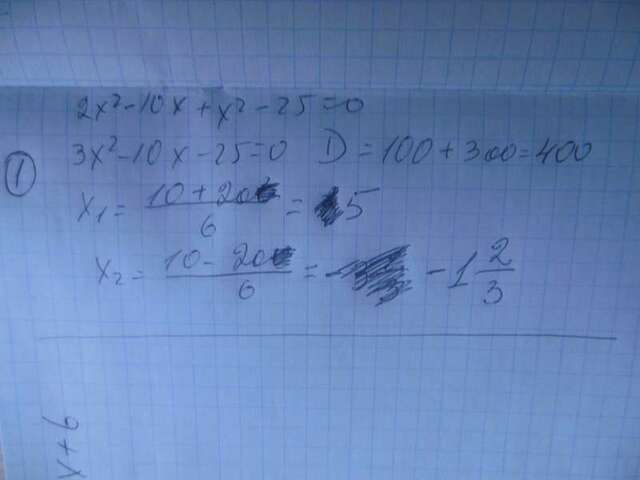 2x² - 10x + x² - 25 = 0
① 3x² - 10x - 25 = 0 D = 100 + 300 = 400
x₁ = (10 + 20)/6 = 5
x₂ = (10 - 20)/6 = -1 2/3
x + 6